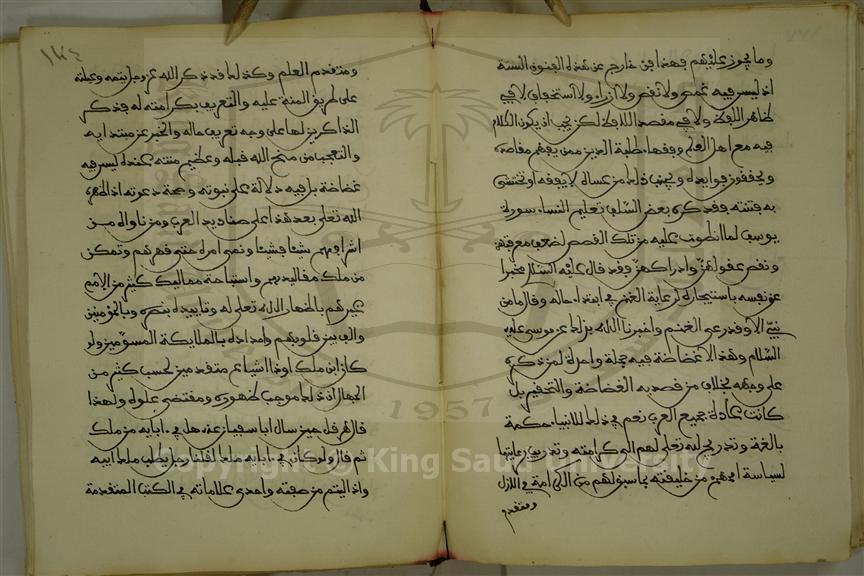 وما يجوز عليهم فهذا فن خارج عن هذه الفنون الستة
اذ ليس فيه غمص ولا نقص ولا ازراء ولا استخفاف لا في
ظاهر اللفظ ولا في مقصد اللافظ لكن يجب ان يكون الكلام
فيه مع اهل العلم وفهماء طلبة الدين ممن يفهم مقاصده
ويحققون فوايده ويجنب ذلك من عساه لا يفقه او يخشى
به فتنته فقد كره بعض السلف تعليم النساء سورة
يوسف لما انطوت عليه من تلك القصص لضعف معرفتهن
ونقص عقولهن وادراكهن فقد قال عليه السلام مخبرا
عن نفسه باستيجاره لرعاية الغنم في ابتداء حاله وقال ما من
نبي الا وقد رعى الغنم واخبرنا الله بذلك عن موسى عليه
السلام وهذا لا غضاضة فيه جملة واحدة لمن ذكره
على وجهه بخلاف من قصد به الغضاضة والتحقير بل
كانت عادة جميع العرب نعم في ذلك للانبياء حكمة
بالغة وتدريج لله تعلى لهم الى كرامته وتدريب برعايتها
لسياسة اممهم من خليقته بما سبق لهم من الكرامة في الازل
ومتقدم
١٢٤
ومتقدم العلم وكذلك قد ذكر الله عز وجل يتمه وعيلته
على طريق المنة عليه والتعريف بكرامته له فذكر
الذاكر لها على وجه تعريف حاله والخبر عن مبتدايه
والتعجب من منح الله قبله وعظيم منته عنده ليس فيه
غضاضة بل فيه دلالة على نبوته وصحة دعوته اذ اظهره
الله تعلى بعد هذا على صناديد العرب ومن ناواه من
اشرافهم شيئا فشيئا ونمى امره حتى قهرهم وتمكن
من ملك مقاليدهم واستباحة ممالك كثير من الامم
غيرهم باظهار الله تعلى له وتاييده بنصره وبالمومنين
والف بين قلوبهم وامداده بالملايكة المسومين ولو
كان ابن ملك او ذا اشياع متقدمين لحسب كثير من
الجهال ان ذلك موجب ظهوره ومقتضى علوه ولهذا
قال هرقل حين سال ابا سفيان عنه هل في ابايه من ملك
ثم قال ولو كان في ابايه ملك لقلنا رجل يطلب ملك ابيه
واذ اليتم من صفته واحدى علاماته في الكتب المتقدمة
1957
Copyright © King Saud University